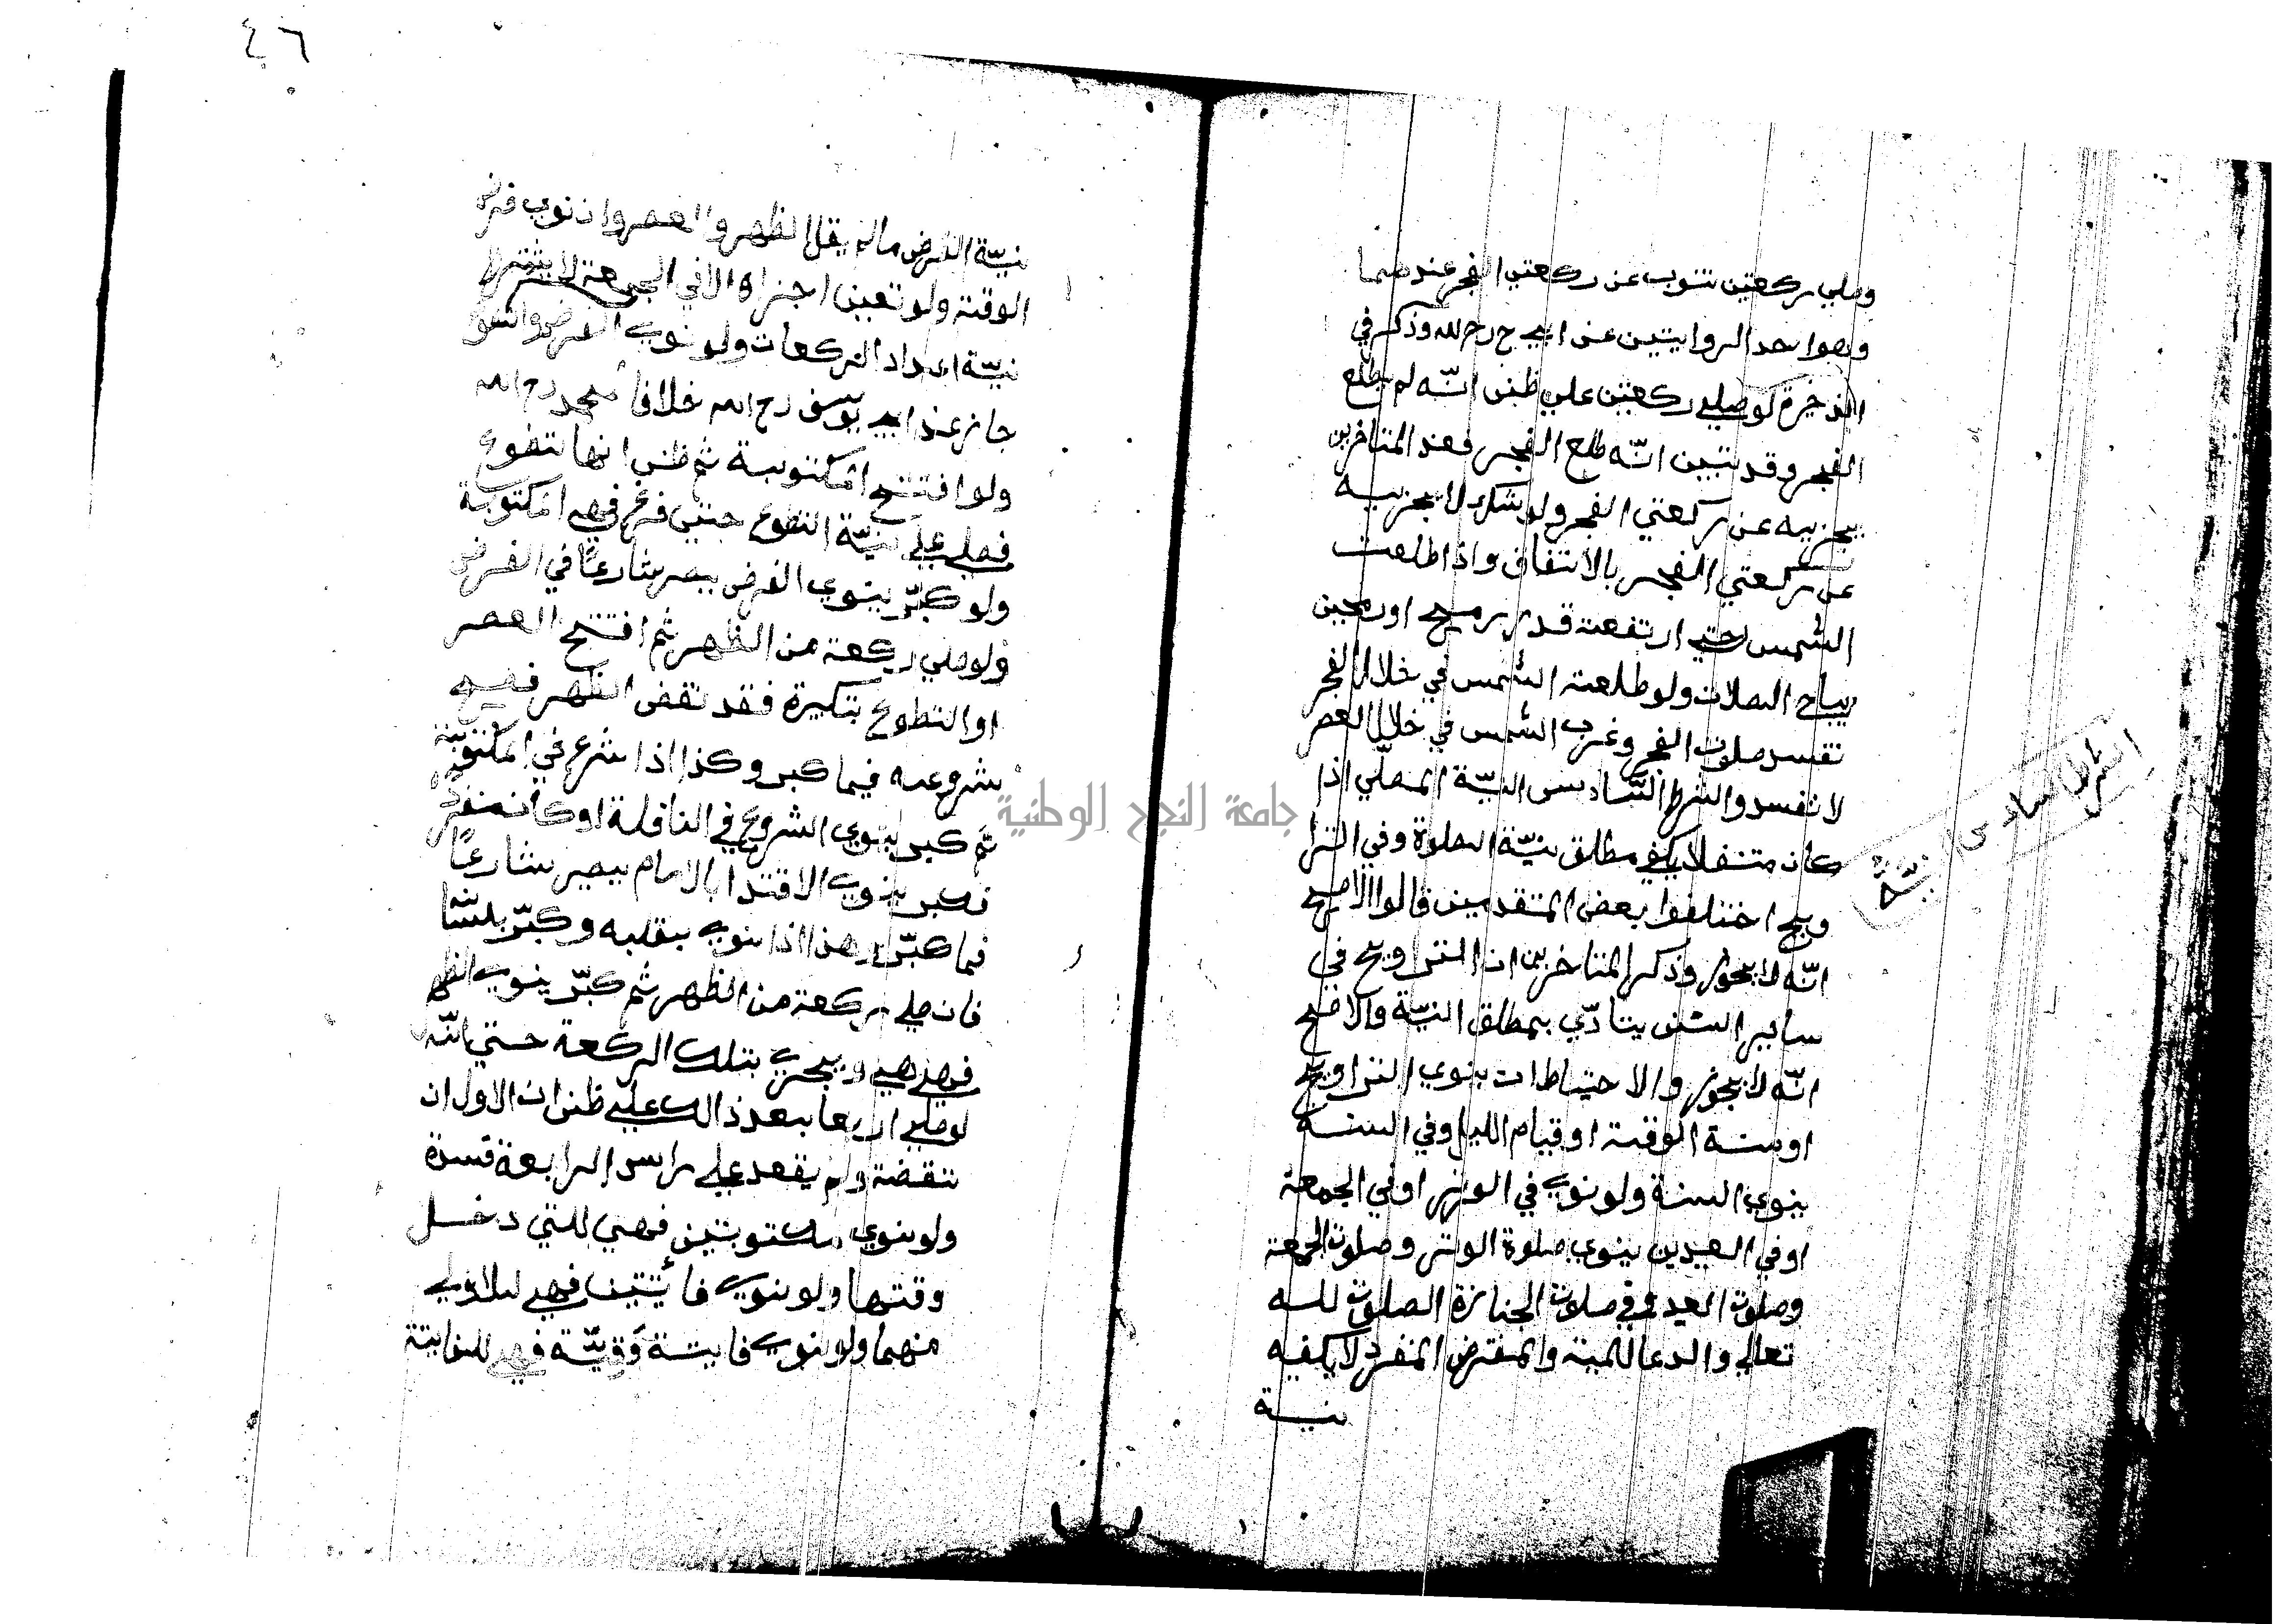 وصلي ركعتين تنوب عن ركعتي الفجر عندهما
وهو احد الروايتين عن ابي ح رح لله وذكر في
الذخيرة لو صلي ركعتين علي ظن انّه لم يطلع
الفجر وقد تبين انّه طلع الفجر فعند المتاخرين
يجزيه عن ركعتي الفجر ولو شك لا يجزيه
عن ركعتي الفجر بالاتفاق واذا طلعت
الشمس حتي ارتفعت قدر رمح او رمحين
يباح الصلات ولو طلعت الشمس في خلال الفجر
تفسد صلوت الفجر وغرب الشمس في خلال العصر
لا تفسد والشرط السّادس النيّة المصلّي اذا
كان متنفلا يكفي مطلق نيّة الصلوة وفي الترا
ويح اختلفوا بعض المتقدمين قالوا الاصح
انّه لا يجوز وذكر المتاخرين ان التراويح في
ساير السنن يتادّي بمطلق النيّة والاصح
انّه لا يجوز والاحتياط ان ينوي التراويح
او سنة الوقت او قيام الليل وفي السنة
ينوي السنة ولو نوي في الوتر او في الجمعة
او في العيدين ينوي صلوة الوتر وصلوت الجمعة
وصلوت العيد وفي صلوت الجنازة الصلوت لله
تعالي والدعا للميت والمفترض المنفرد لا يكفيه
نية
الشرط السادس النيّة
٤٦
نيّة الفرض ما لم يقل الظهر والعصر واذ نوي فرض
الوقت ولو تعين اجزاه الا في الجمعة لا يشترط
نيّة اعداد الركعات ولو نوي الفرض والتطوع
جاز عند ابي يوسف رح الله خلافا لمحمد رح الله
ولو افتتح المكتوبة ثم ظن انها تطوع
فصلي علي نيّة التطوع حتي فرغ فهي المكتوبة
ولو كبّر ينوي الفرض يصير شارعًا في الفرض
ولو صلي ركعة من الظهر ثم افتتح العصر
او التطوع بتكبيرة فقد نقض الظهر فصح
شروعه فيما كبر وكذا اذا شرع في المكتوبة
ثم كبر ينوي الشروع في النافلة او كان منفردًا
فكبر ينوي الاقتدا بالامام يصير شارعًا
فيما كبّر هذا اذا نوي بقلبه وكبّر بلسانه
فان صلي ركعة من الظهر ثم كبّر ينوي الظهر
فهي هي ويجزي بتلك الركعة حتي انّه
لو صلي اربعا بعد ذالك علي ظن ان الاول ان
تنقضت ولم يقعد علي راس الرابعة فسدة
ولو نوي مكتوبتين فهي للتي دخل
وقتها ولو نوي فائتين فهي للاولي
منهما ولو نوي فايتة وقتيّة فهي للفايتة
جامعة النجاح الوطنية